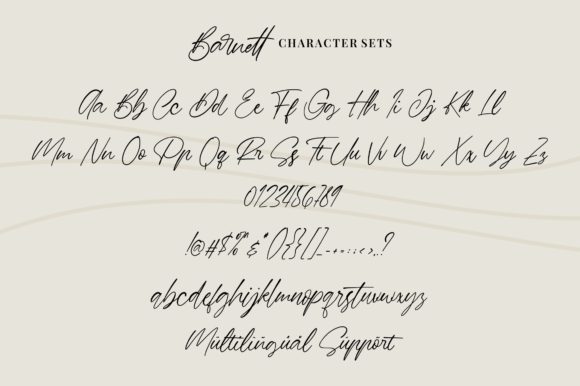 Barnett CHARACTER SETS
Aa Bb Cc Dd Ee Ff Gg Hh Ii Jj Kk Ll
Mm Nn Oo Pp Qq Rr Ss Tt Uu Vv Ww Xx Yy Zz
0123456789
!@#$%^&*(){}[]_-+=:;<>,.?
abcdefghijklmnopqrstuvwxyz
Mültilingüál Süppört